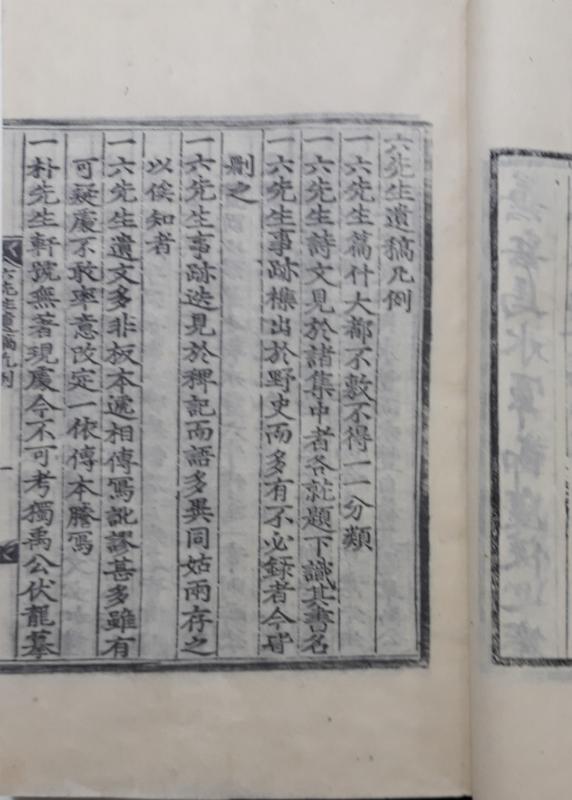 六先生遺稿凡例
一六先生篇什大都不敷不得一一分類
一六先生詩文見於諸集中者各就題下識其書名
一六先生事跡襍出於野史而多有不必録者今皆
刪之
一六先生事跡迭見於稗記而語多異同姑兩存之
以俟知者
一六先生遺文多非板本遞相傳寫訛謬甚多雖有
可疑處不敢率意改定一依傳本謄寫
一朴先生軒號無著現處今不可考獨禹公伏龍墓
六先生遺稿凡例
一